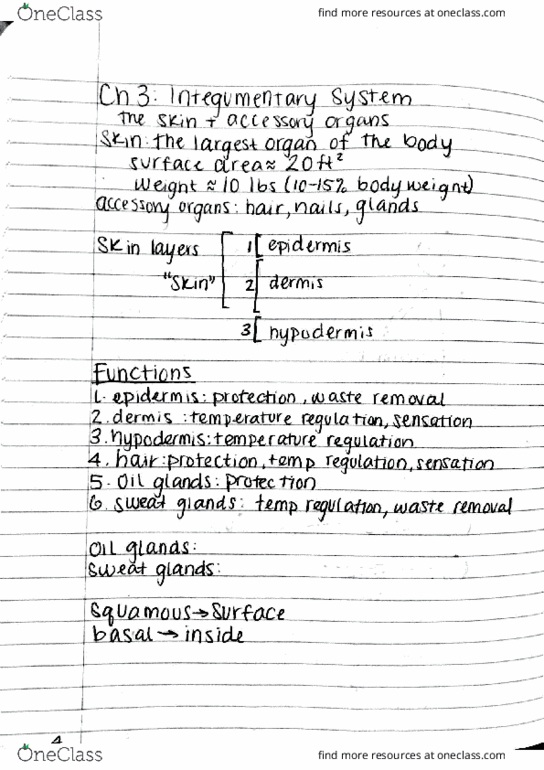 OneClass
find more resources at oneclass.com
Ch 3: Integumentary System
the skin + accessory organs
Skin: the largest organ of the body
surface area ≈ 20 ft²
weight ≈ 10 lbs (10-15% body weight)
accessory organs: hair, nails, glands
Skin layers 1 [ epidermis
"skin" 2 [ dermis
3 [ hypodermis
Functions
1. epidermis: protection, waste removal
2. dermis: temperature regulation, sensation
3. hypodermis: temperature regulation
4. hair: protection, temp regulation, sensation
5. Oil glands: protection
6. sweat glands: temp regulation, waste removal
Oil glands:
Sweat glands:
Squamous → surface
basal → inside
4
OneClass
find more resources at oneclass.com